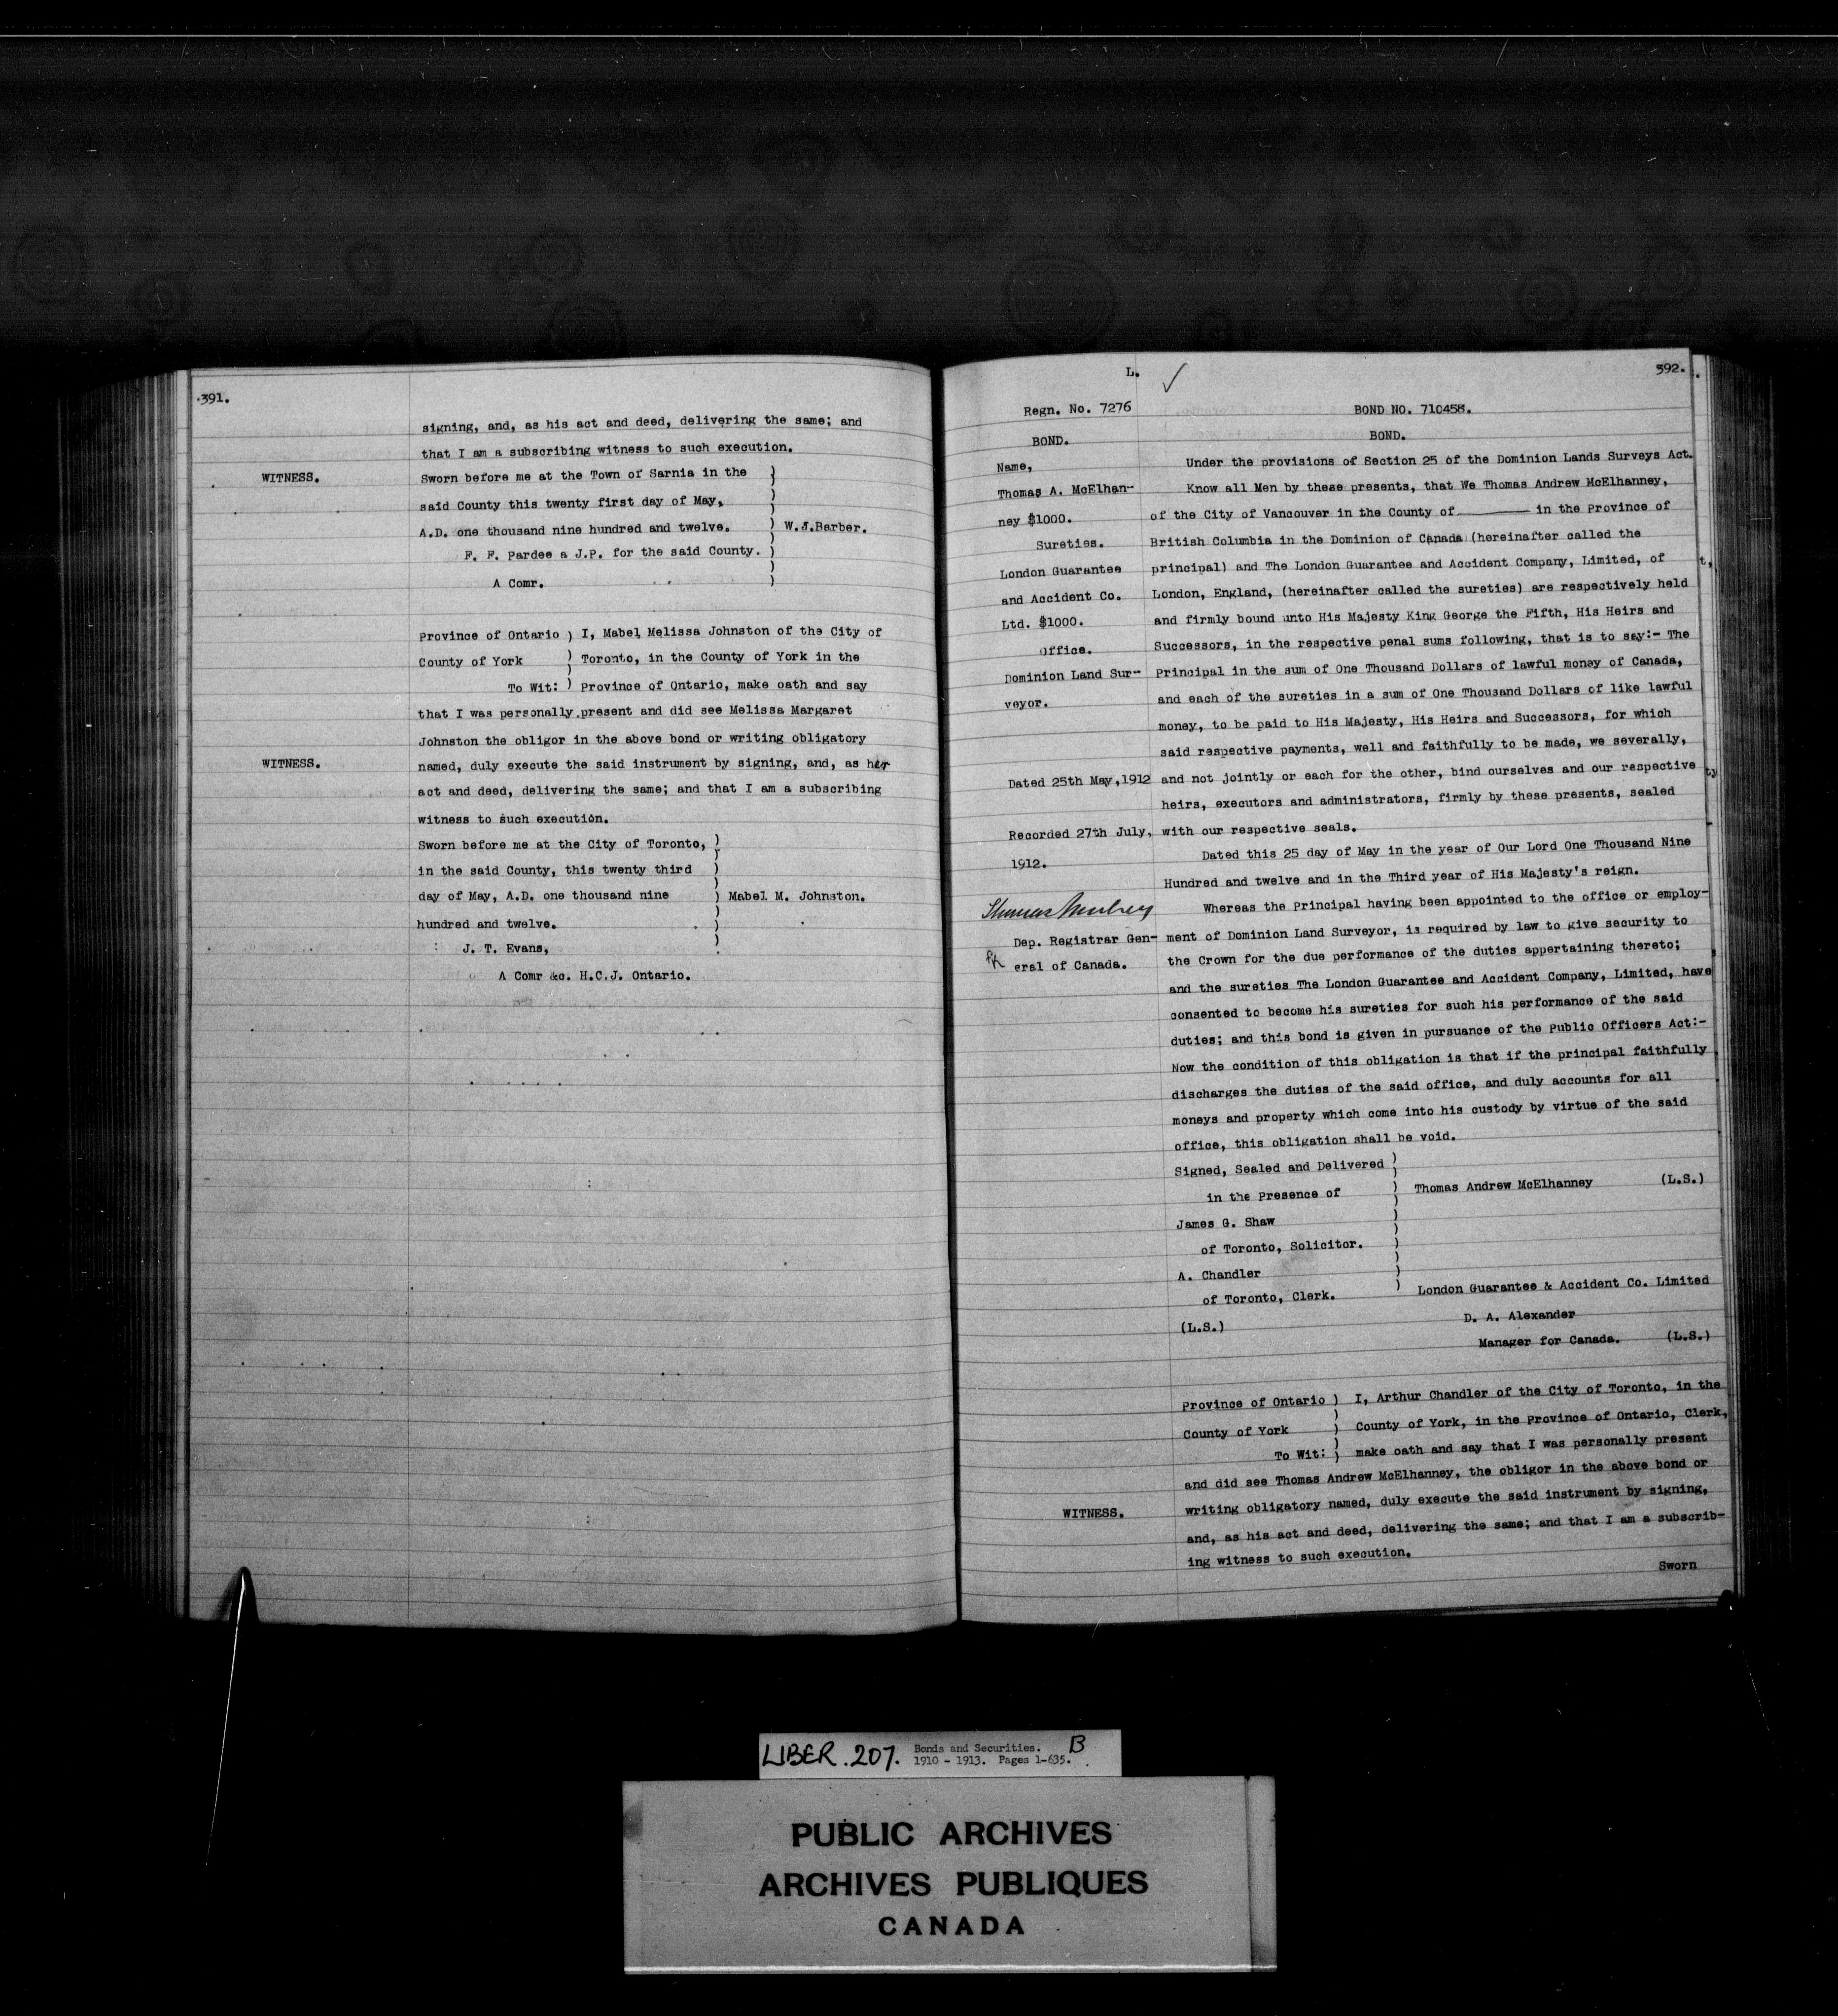 391.
signing, and, as his act and deed, delivering the same; and
that I am a subscribing witness to such execution.
WITNESS.
Sworn before me at the Town of Sarnia in the )
said County this twenty first day of May, )
A.D. one thousand nine hundred and twelve. ) W.J.Barber.
F. F. Pardee a J.P. for the said County. )
A Comr. )
Province of Ontario ) I, Mabel Melissa Johnston of the City of
County of York ) Toronto, in the County of York in the
To Wit: ) Province of Ontario, make oath and say
that I was personally present and did see Melissa Margaret
Johnston the obligor in the above bond or writing obligatory
WITNESS.
named, duly execute the said instrument by signing, and, as her
act and deed, delivering the same; and that I am a subscribing
witness to such execution.
Sworn before me at the City of Toronto, )
in the said County, this twenty third )
day of May, A.D. one thousand nine ) Mabel M. Johnston.
hundred and twelve. )
J. T. Evans, )
A Comr &c. H.C.J. Ontario.
L.
392.
Regn. No. 7276
BOND.
Name,
Thomas A. McElhan-
ney $1000.
Sureties.
London Guarantee
and Accident Co.
Ltd. $1000.
Office.
Dominion Land Sur-
veyor.
Dated 25th May, 1912
Recorded 27th July,
1912.
Thomas Mulvey
Dep. Registrar Gen-
eral of Canada.
BOND NO. 710458.
BOND.
Under the provisions of Section 25 of the Dominion Lands Surveys Act.
Know all Men by these presents, that We Thomas Andrew McElhanney,
of the City of Vancouver in the County of ———— in the Province of
British Columbia in the Dominion of Canada (hereinafter called the
principal) and The London Guarantee and Accident Company, Limited, of
London, England, (hereinafter called the sureties) are respectively held
and firmly bound unto His Majesty King George the Fifth, His Heirs and
Successors, in the respective penal sums following, that is to say:- The
Principal in the sum of One Thousand Dollars of lawful money of Canada,
and each of the sureties in a sum of One Thousand Dollars of like lawful
money, to be paid to His Majesty, His Heirs and Successors, for which
said respective payments, well and faithfully to be made, we severally,
and not jointly or each for the other, bind ourselves and our respective
heirs, executors and administrators, firmly by these presents, sealed
with our respective seals.
Dated this 25 day of May in the year of Our Lord One Thousand Nine
Hundred and twelve and in the Third year of His Majesty's reign.
Whereas the Principal having been appointed to the office or employ-
ment of Dominion Land Surveyor, is required by law to give security to
the Crown for the due performance of the duties appertaining thereto;
and the sureties The London Guarantee and Accident Company, Limited, have
consented to become his sureties for such his performance of the said
duties; and this bond is given in pursuance of the Public Officers Act:-
Now the condition of this obligation is that if the principal faithfully
discharges the duties of the said office, and duly accounts for all
moneys and property which come into his custody by virtue of the said
office, this obligation shall be void.
Signed, Sealed and Delivered )
in the Presence of ) Thomas Andrew McElhanney (L.S.)
James G. Shaw )
of Toronto, Solicitor. )
A. Chandler )
of Toronto, Clerk. ) London Guarantee & Accident Co. Limited
(L.S.) D. A. Alexander
Manager for Canada. (L.S.)
Province of Ontario ) I, Arthur Chandler of the City of Toronto, in the
County of York ) County of York, in the Province of Ontario, Clerk,
To Wit: ) make oath and say that I was personally present
and did see Thomas Andrew McElhanney, the obligor in the above bond or
WITNESS.
writing obligatory named, duly execute the said instrument by signing,
and, as his act and deed, delivering the same; and that I am a subscrib-
ing witness to such execution.
Sworn
LIBER. 207. Bonds and Securities. B
1910 - 1913. Pages 1-635.
PUBLIC ARCHIVES
ARCHIVES PUBLIQUES
CANADA